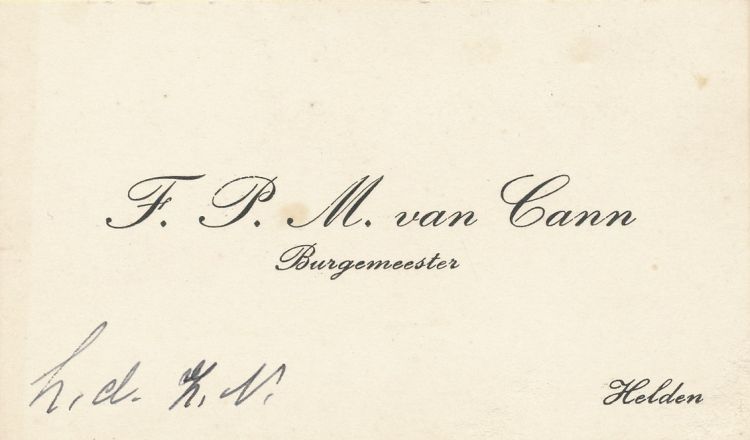 F. P. M. van Cann
Burgemeester
h. d. K. N.
Helden